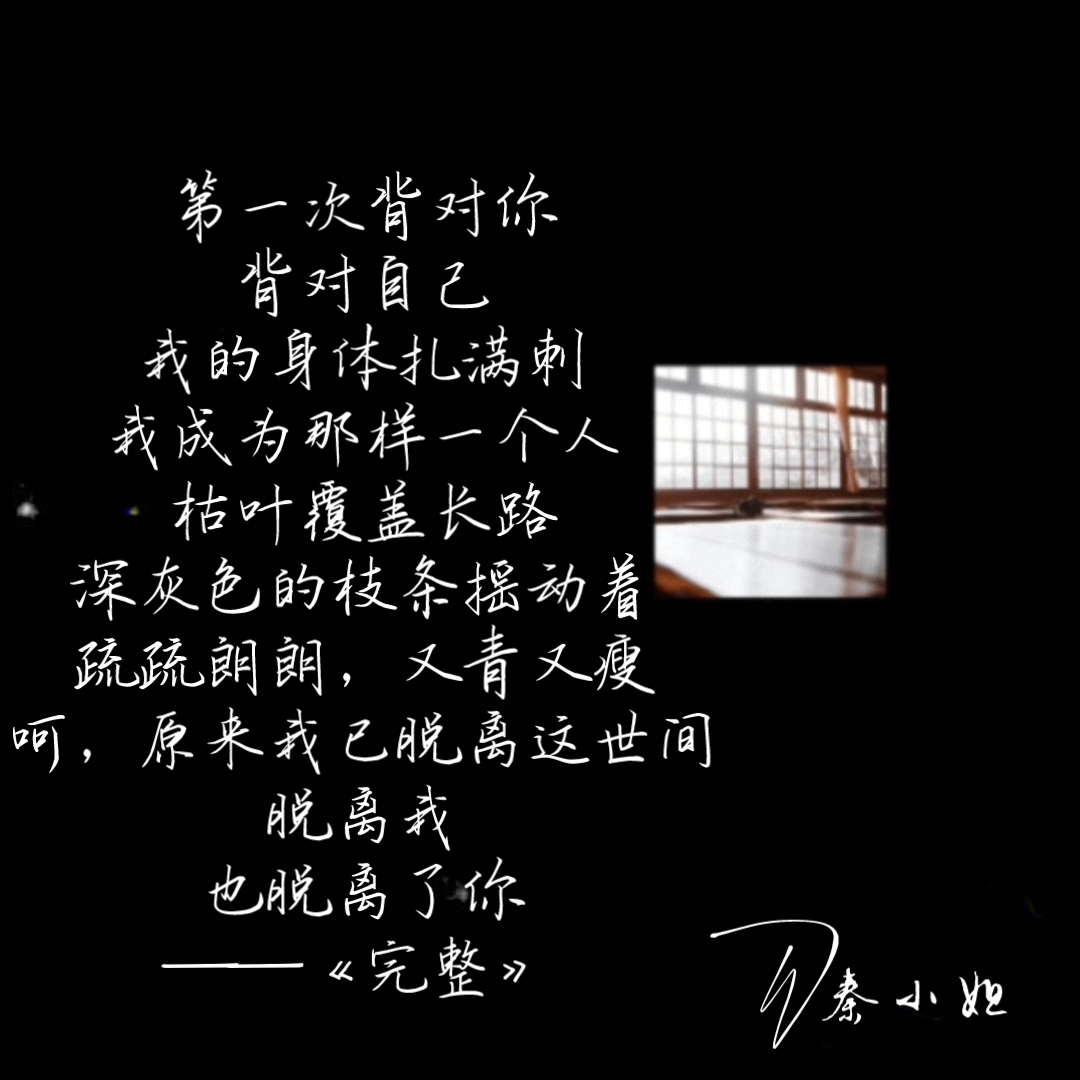 第一次背对你
背对自己
我的身体扎满刺
我成为那样一个人
枯叶覆盖长路
深灰色的枝条摇动着
疏疏朗朗，又青又瘦
呵，原来我已脱离这世间
脱离我
也脱离了你
——《完整》
秦小姐